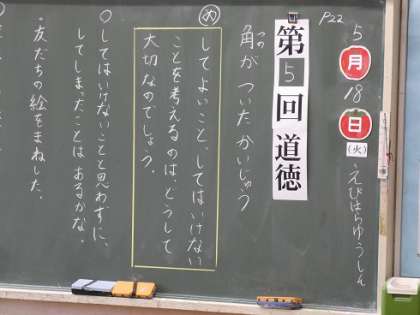 P22
5月18日(火)
えびはらゆうしん
第5回道徳
角がついたかいじゅう
つの
め
してよいこと、してはいけない
ことを考えるのはどうして
大切なのでしょう。
○してはいけないことと思わずに、
してしまったことはあるかな。
・友だちの絵をまねした。